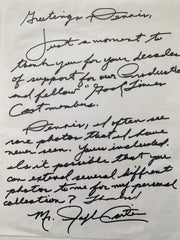 Greetings Dennis,
Just a moment to
thank you for your decades
of support for our Production
and fellow "Good Times"
Castmembers.
Dennis, I often see
rare photos that I have
never seen. Yours included.
Is it possible that you
can extend several different
photos to me for my personal
collection? Thanks!
Mr.